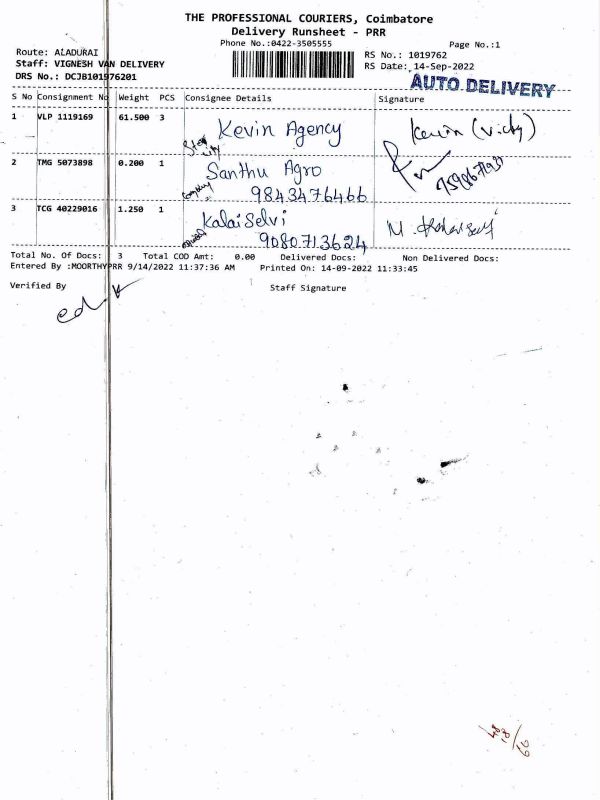 THE PROFESSIONAL COURIERS, Coimbatore
Delivery Runsheet - PRR
Phone No.:0422-3505555
Page No.:1
Route: ALADURAI
RS No.: 1019762
Staff: VIGNESH VAN DELIVERY
RS Date: 14-Sep-2022
DRS No.: DCJB101976201
AUTO DELIVERY
S No Consignment No Weight PCS Consignee Details Signature
1 VLP 1119169 61.500 3 Kevin Agency Kevin (Vicky)
2 TMG 5073898 0.200 1 Santhu Agro
9843476466
3 TCG 40229016 1.250 1 KalaiSelvi
9080713624
Total No. Of Docs: 3 Total COD Amt: 0.00 Delivered Docs: Non Delivered Docs:
Entered By :MOORTHYPRR 9/14/2022 11:37:36 AM Printed On: 14-09-2022 11:33:45
Verified By Staff Signature